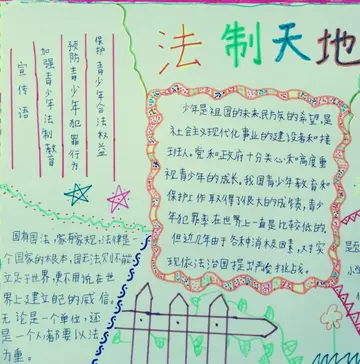 法制天地
保护青少年合法权益
预防青少年犯罪行为
加强青少年法制教育
宣传语
少年是祖国的未来,民族的希望,是
社会主义现代化事业的建设者和接
班人。党和政府十分关心和高度重
视青少年的成长。我国青少年教育和
保护工作取得了很大的成绩,青少
年犯罪率在世界上一直是比较低的。
但近几年由于各种消极因素,对实
现依法治国提出严峻挑战。
国有国法,家有家规,法律是一
个国家的根本,国无法则不能
立足于世界,更不用说在世
界上建立自己的威信。
无论是一个单位,还
是一个人,都要以法
为重。